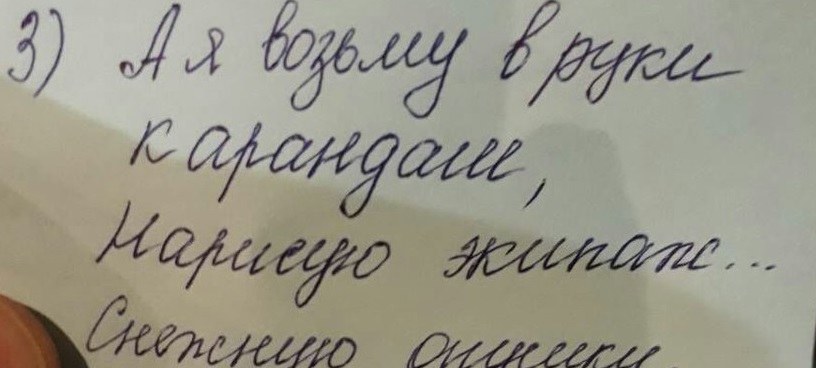 3) А я возьму в руки
карандаш,
Нарисую экипаж...
Снежную